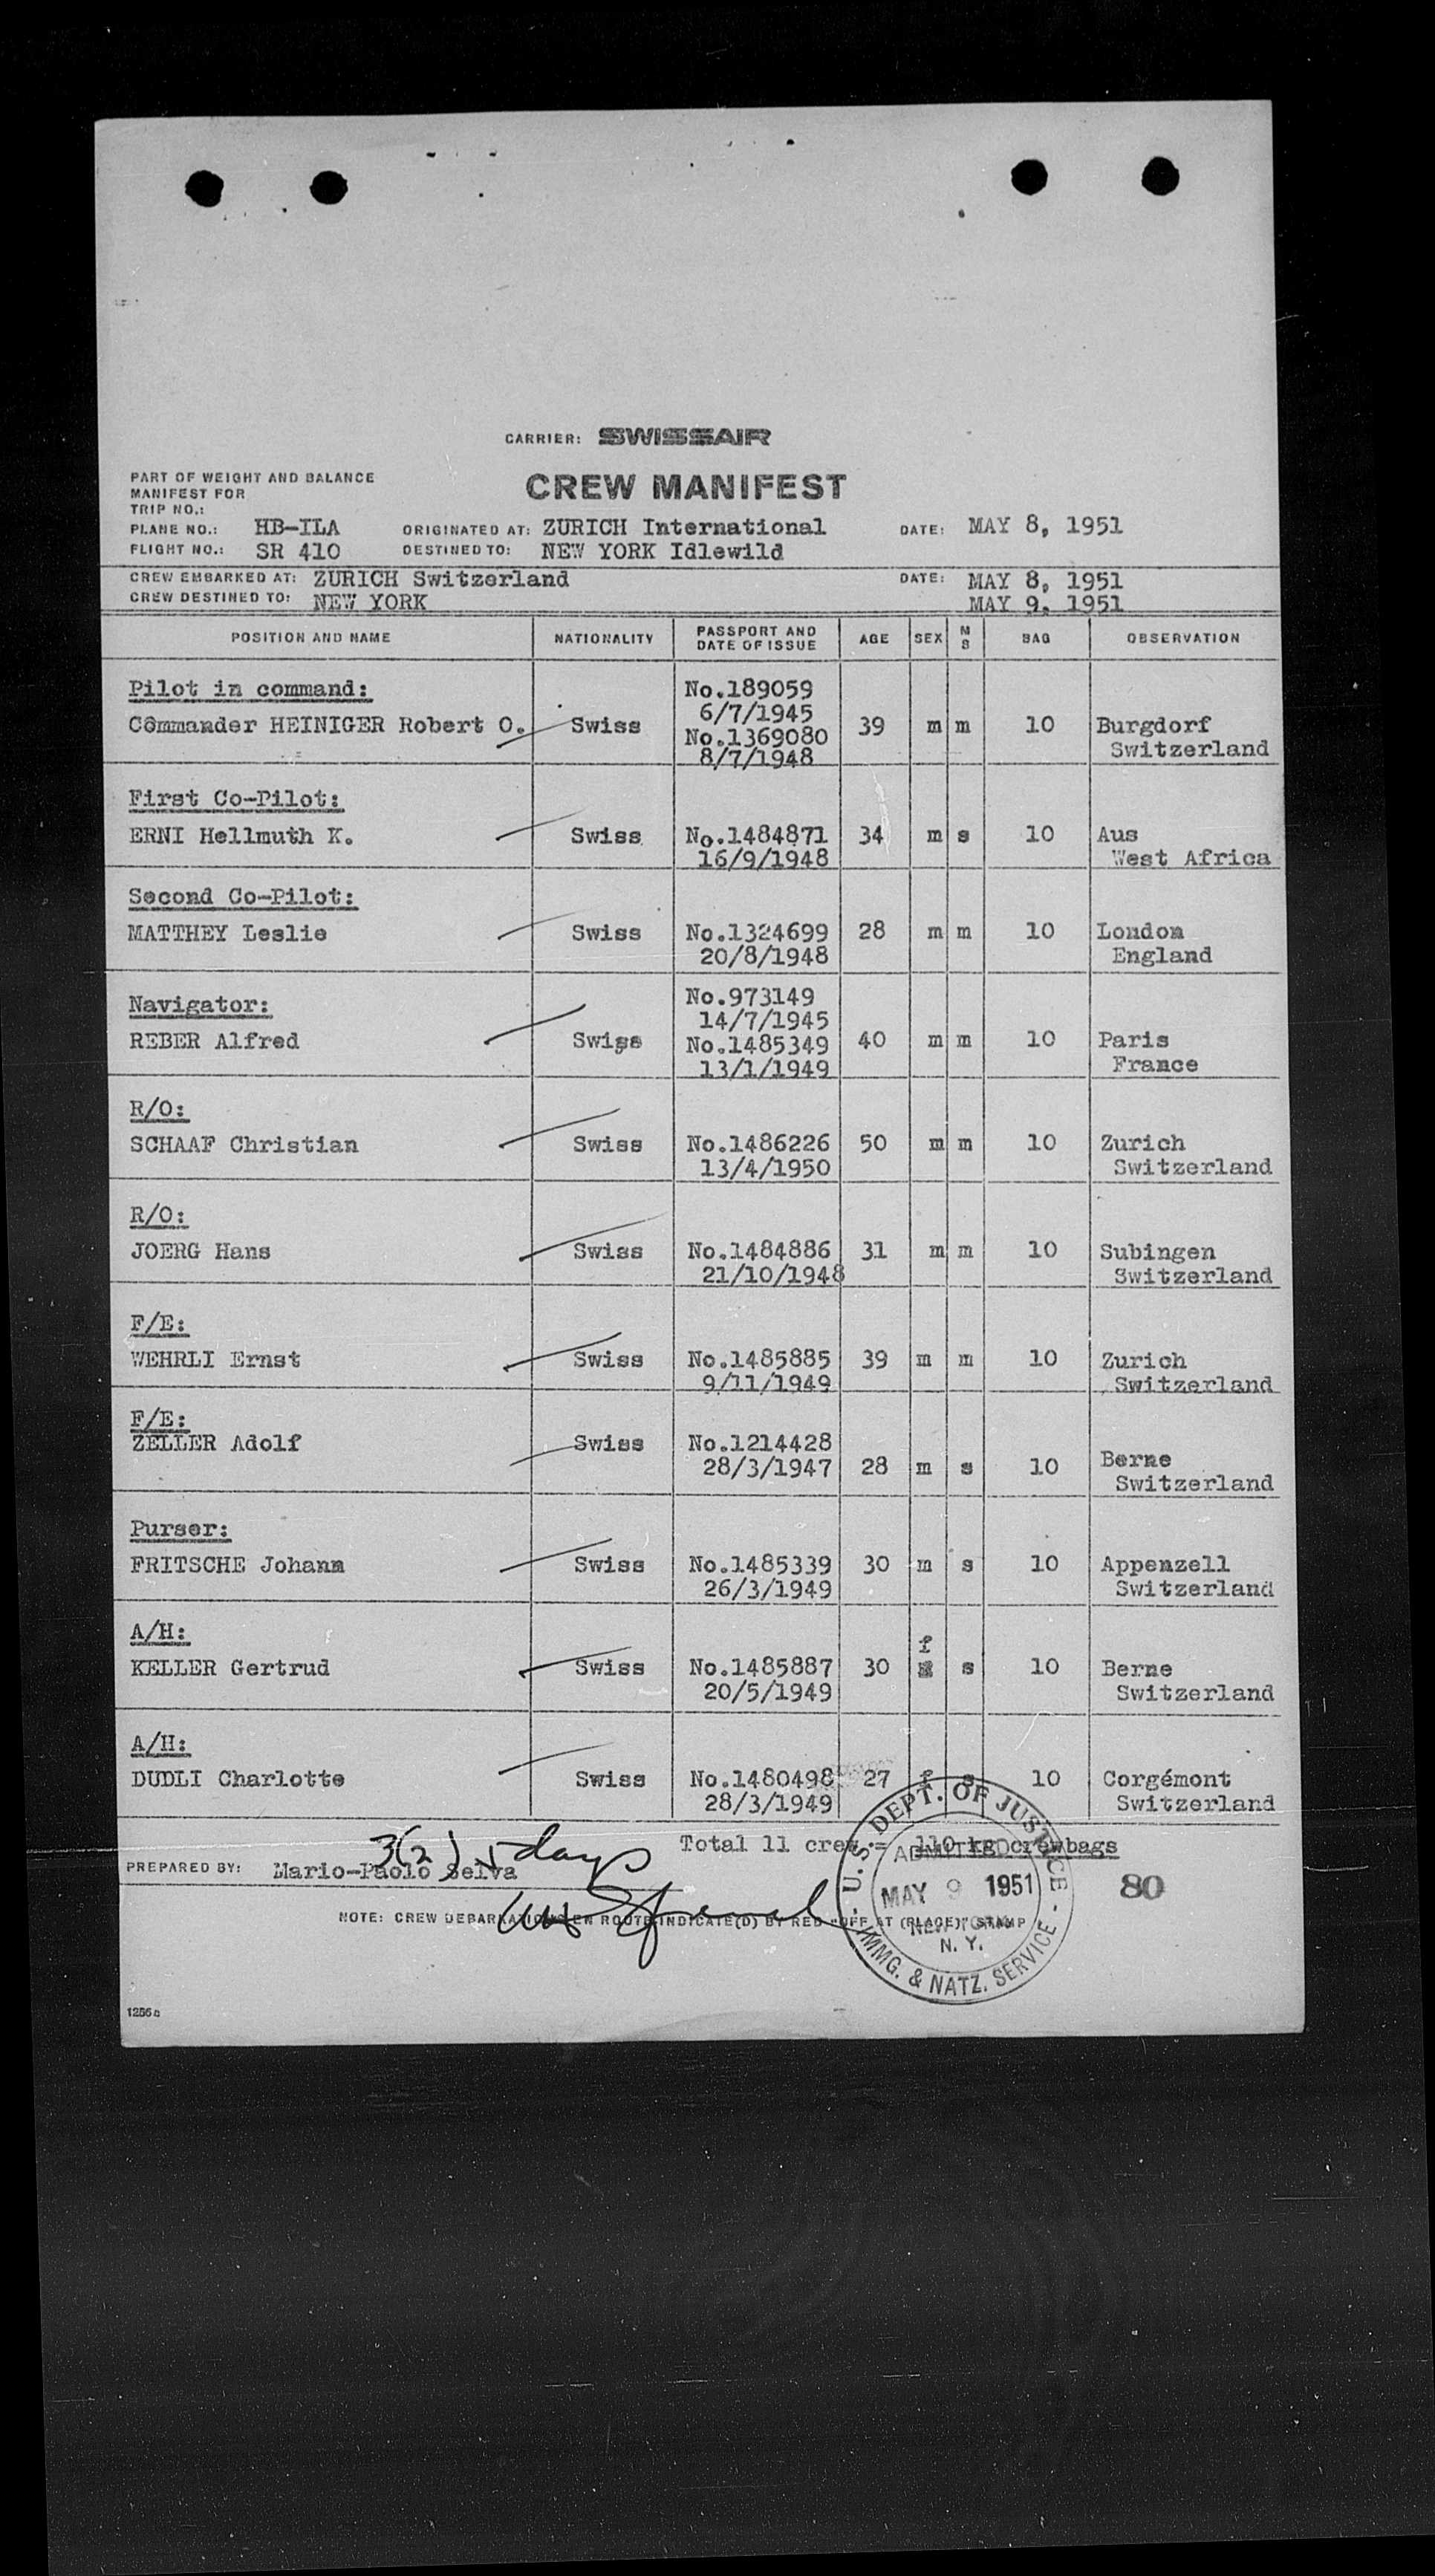 CARRIER: SWISSAIR
PART OF WEIGHT AND BALANCE
MANIFEST FOR
CREW MANIFEST
TRIP NO.:
PLANE NO.: HB-ILA ORIGINATED AT: ZURICH International DATE: MAY 8, 1951
FLIGHT NO.: SR 410 DESTINED TO: NEW YORK Idlewild
CREW EMBARKED AT: ZURICH Switzerland DATE: MAY 8, 1951
CREW DESTINED TO: NEW YORK MAY 9, 1951
POSITION AND NAME NATIONALITY PASSPORT AND DATE OF ISSUE AGE SEX M S BAG OBSERVATION
Pilot in command: No.189059
6/7/1945
Commander HEINIGER Robert O. Swiss No.1369080 39 m m 10 Burgdorf
8/7/1948 Switzerland
First Co-Pilot:
ERNI Hellmuth K. Swiss No.1484871 34 m s 10 Aus
16/9/1948 West Africa
Second Co-Pilot:
MATTHEY Leslie Swiss No.1324699 28 m m 10 London
20/8/1948 England
Navigator: No.973149
14/7/1945
REBER Alfred Swiss No.1485349 40 m m 10 Paris
13/1/1949 France
R/O:
SCHAAF Christian Swiss No.1486226 50 m m 10 Zurich
13/4/1950 Switzerland
R/O:
JOERG Hans Swiss No.1484886 31 m m 10 Subingen
21/10/1948 Switzerland
F/E:
WEHRLI Ernst Swiss No.1485885 39 m m 10 Zurich
9/11/1949 Switzerland
F/E:
ZELLER Adolf Swiss No.1214428
28/3/1947 28 m s 10 Berne
Switzerland
Purser:
FRITSCHE Johann Swiss No.1485339 30 m s 10 Appenzell
26/3/1949 Switzerland
A/H: f
KELLER Gertrud Swiss No.1485887 30 s 10 Berne
20/5/1949 Switzerland
A/H:
DUDLI Charlotte Swiss No.1480498 27 f s 10 Corgémont
28/3/1949 Switzerland
3(2) 5 days
Total 11 crew = 110 kg crewbags
PREPARED BY: Mario-Paolo Selva
80
NOTE: CREW DEBARKATIONS EN ROUTE INDICATE(D) BY RED "OFF AT (PLACE)" STAMP
U. S. DEPT. OF JUSTICE
ADMITTED
MAY 9 1951
NEW YORK
N. Y.
IMMG. & NATZ. SERVICE
1256a